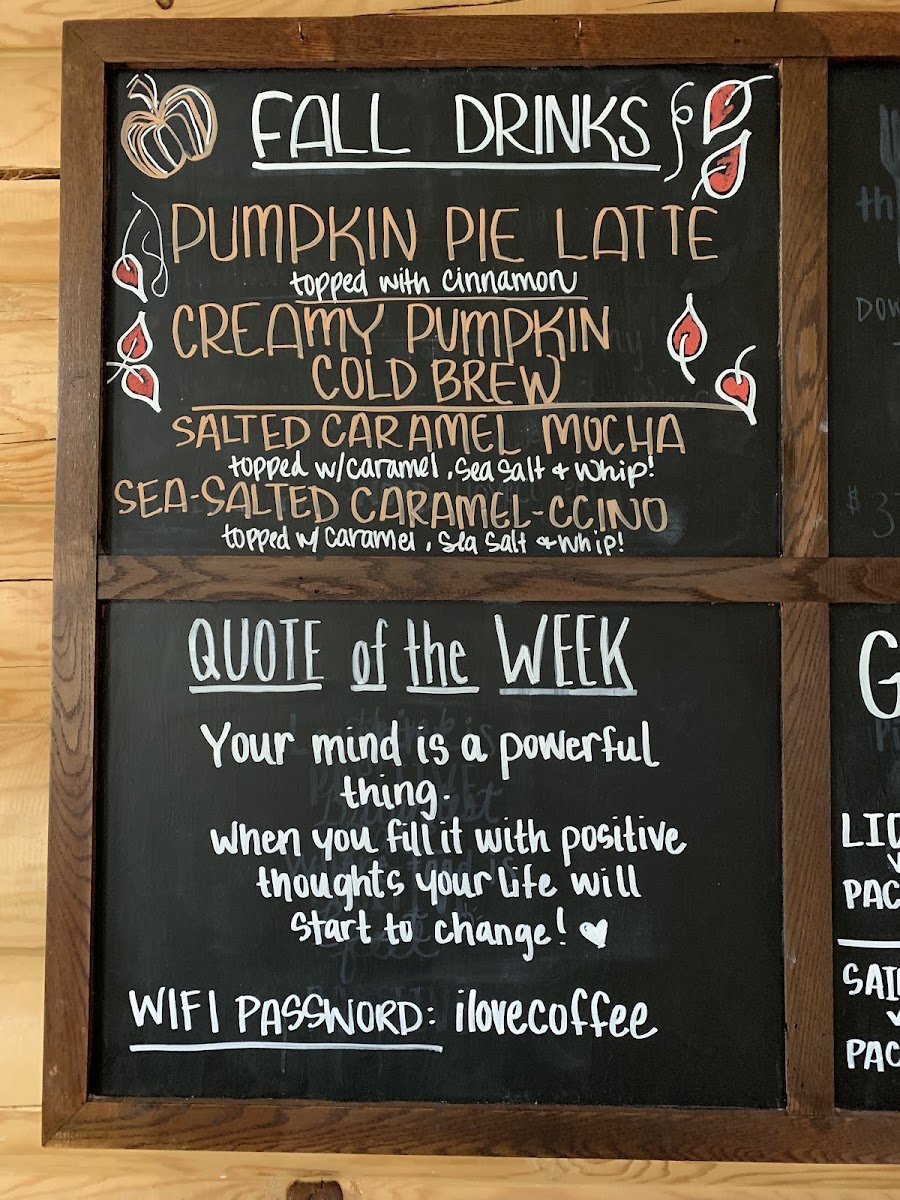 FALL DRINKS
PUMPKIN PIE LATTE
topped with cinnamon
CREAMY PUMPKIN
COLD BREW
SALTED CARAMEL MOCHA
topped w/caramel, sea salt + whip!
SEA-SALTED CARAMEL-CCINO
topped w/ caramel, sea salt + whip!
QUOTE of the WEEK
Your mind is a powerful
thing.
When you fill it with positive
thoughts your life will
start to change!
WIFI PASSWORD: ilovecoffee